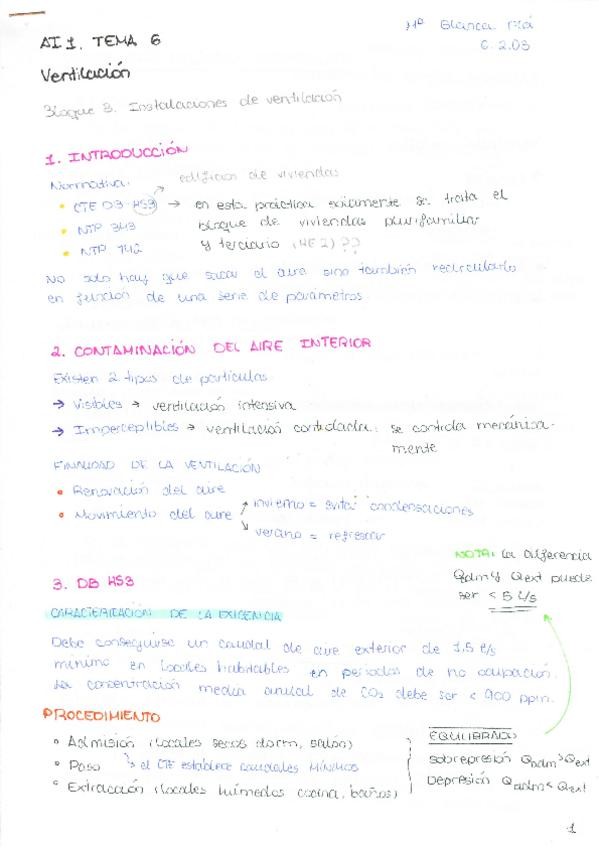 Mª Blanca Plá
AI 1. TEMA 6
C. 2.03
Ventilación
Bloque 3. Instalaciones de ventilación
1. INTRODUCCIÓN
Normativa: edificios de viviendas
• CTE DB-HS3 → en esta práctica únicamente se trata el
• NTP 343 bloque de viviendas plurifamiliar
• NTP 742 y terciario (HE2) ??
No solo hay que sacar el aire sino también recircularlo
en función de una serie de parámetros.
2. CONTAMINACIÓN DEL AIRE INTERIOR
Existen 2 tipos de partículas
→ Visibles → ventilación intensiva
→ Imperceptibles → ventilación controlada: se controla mecánica-
mente
FINALIDAD DE LA VENTILACIÓN
• Renovación del aire
• Movimiento del aire invierno = evitar condensaciones
verano = refrescar
NOTA: La diferencia
Qadm y Qext puede
ser < 5 l/s
3. DB HS3
CARACTERIZACIÓN DE LA EXIGENCIA
Debe conseguirse un caudal de aire exterior de 1,5 l/s
mínimo en locales habitables en periodos de no ocupación.
La concentración media anual de CO2 debe ser < 900 ppm.
PROCEDIMIENTO
° Admisión (locales secos dorm, salón)
° Paso → el CTE establece caudales MÍNIMOS
° Extracción (locales húmedos cocina, baños)
EQUILIBRADO
sobrepresión Qadm>Qext
Depresión Qadm<Qext
1